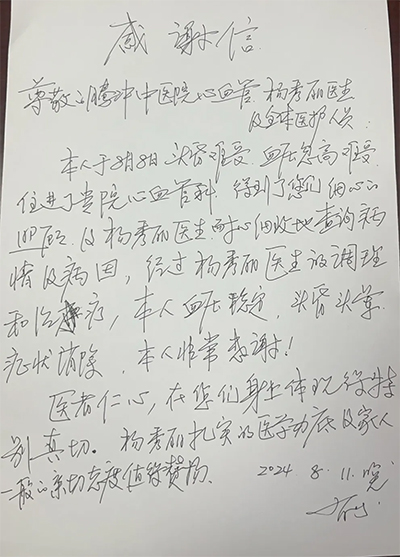 感谢信
尊敬的腾冲中医院心血管 杨秀丽医生
及全体医护人员:
本人于8月8日头昏难受 血压忽高难受
住进了贵院心血管科 得到了您们细心的
照顾. 及杨秀丽医生耐心细致地查询病
情及病因, 经过杨秀丽医生的调理
和治疗, 本人血压稳定, 头昏头晕
症状消除, 本人非常感谢!
医者仁心, 在您们身上体现得特
别真切. 杨秀丽扎实的医学功底及家人
一般的亲切态度值得赞扬.
2024. 8. 11. 晚